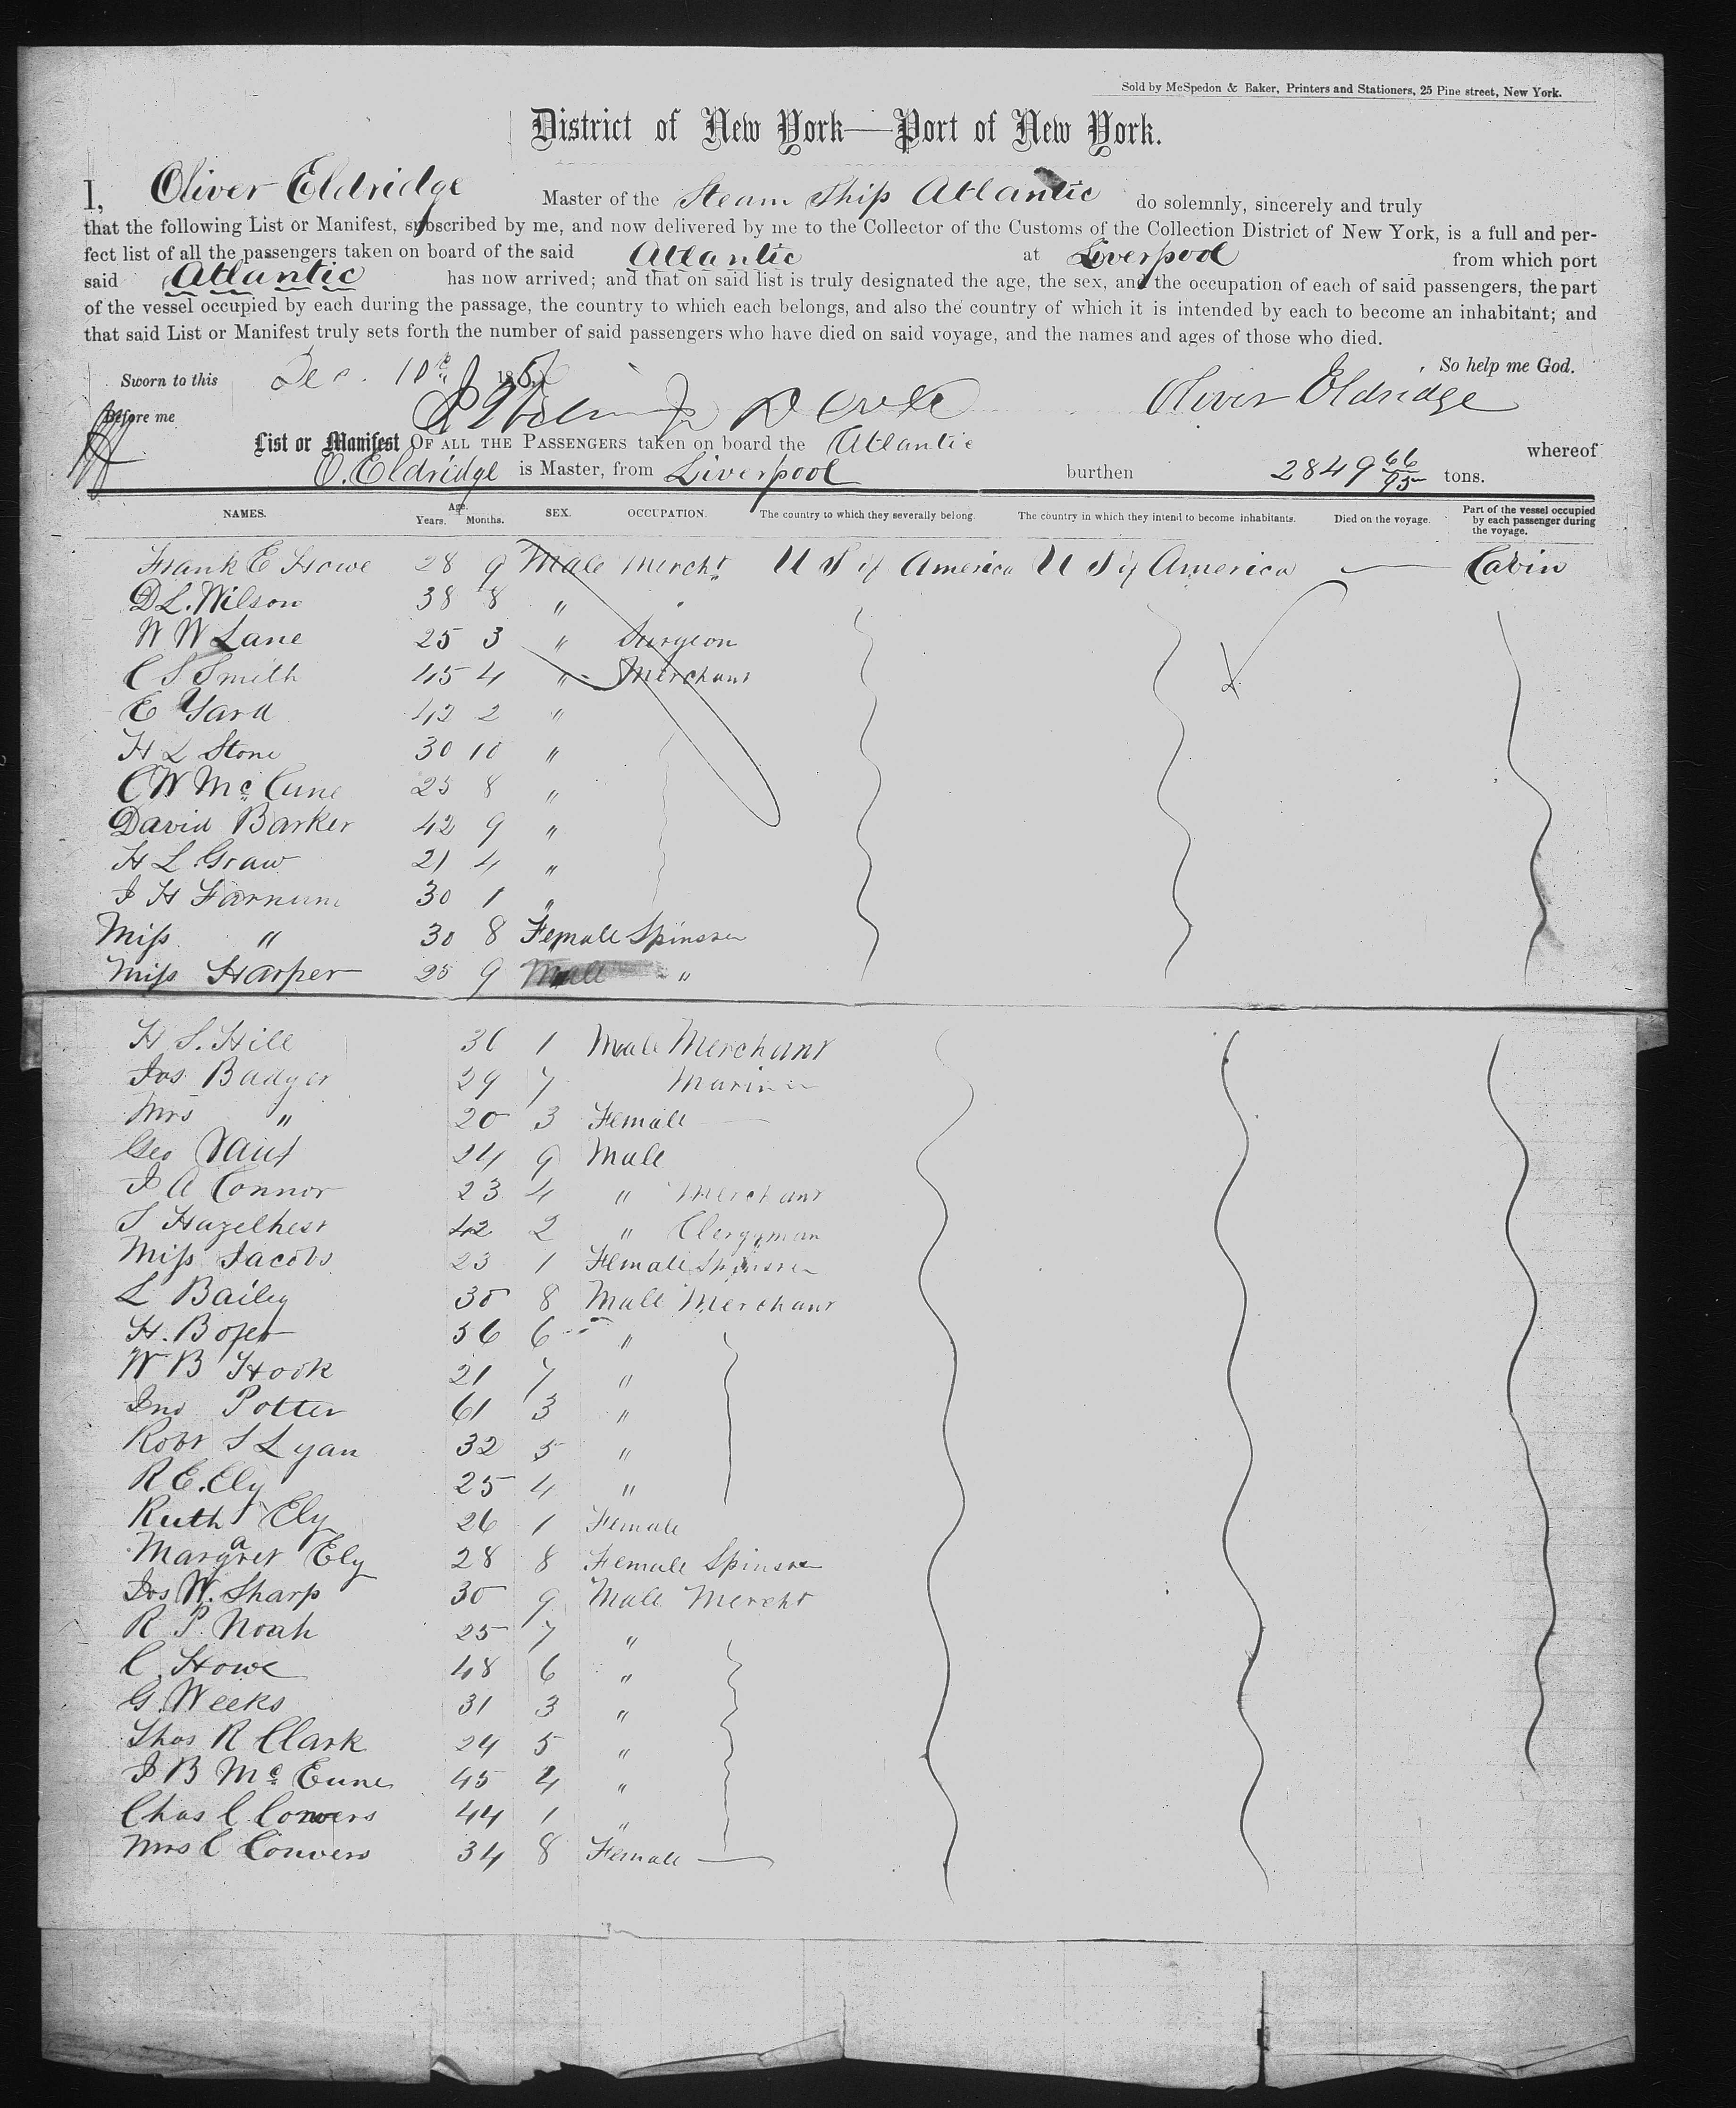 Sold by McSpedon & Baker, Printers and Stationers, 25 Pine street, New York.
District of New York—Port of New York.
I, Oliver Eldridge Master of the Steam Ship Atlantic do solemnly, sincerely and truly
that the following List or Manifest, subscribed by me, and now delivered by me to the Collector of the Customs of the Collection District of New York, is a full and per-
fect list of all the passengers taken on board of the said Atlantic at Liverpool from which port
said Atlantic has now arrived; and that on said list is truly designated the age, the sex, and the occupation of each of said passengers, the part
of the vessel occupied by each during the passage, the country to which each belongs, and also the country of which it is intended by each to become an inhabitant; and
that said List or Manifest truly sets forth the number of said passengers who have died on said voyage, and the names and ages of those who died.
So help me God.
Sworn to this Dec. 10th 185
Before me Oliver Eldridge
List or Manifest OF ALL THE PASSENGERS taken on board the Atlantic whereof
O. Eldridge is Master, from Liverpool burthen 2849 66/95 tons.
NAMES. Age. Years. Months. SEX. OCCUPATION. The country to which they severally belong. The country in which they intend to become inhabitants. Died on the voyage. Part of the vessel occupied by each passenger during the voyage.
Frank E Howe 28 9 Male Mercht U S of America U S of America — Cabin
D L. Wilson 38 8 " "
W W Lane 25 3 " Surgeon
C S Smith 45 4 " Merchant
E Yard 42 2 "
H L Stone 30 10 "
C W Mc Cune 25 8 "
David Barker 42 9 "
H L Graw 21 4 "
J H Farnum 30 1 "
Miss " 30 8 Female Spinster
Miss Harper 25 9 Male "
H S. Hill 36 1 Male Merchant
Jos Badger 29 7 Mariner
Mrs " 20 3 Female —
Geo 24 9 Male
J A Connor 23 4 " Merchant
S Hazelhest 42 2 " Clergyman
Miss Jacobs 23 1 Female Spinster
L Bailey 35 8 Male Merchant
H. 36 6 "
W B Hook 21 7 "
Jno Potter 61 3 "
Robt S Lyan 32 5 "
R E. Ely 25 4 "
Ruth Ely 26 1 Female
Margaret Ely 28 8 Female Spinster
Jos W. Sharp 30 9 Male Mercht
R P. Noah 25 7 "
C. Howe 48 6 "
G. Weeks 31 3 "
Thos R Clark 24 5 "
J B Mc Cune 45 4 "
Chas C Convers 44 1 "
Mrs C Convers 34 8 Female —